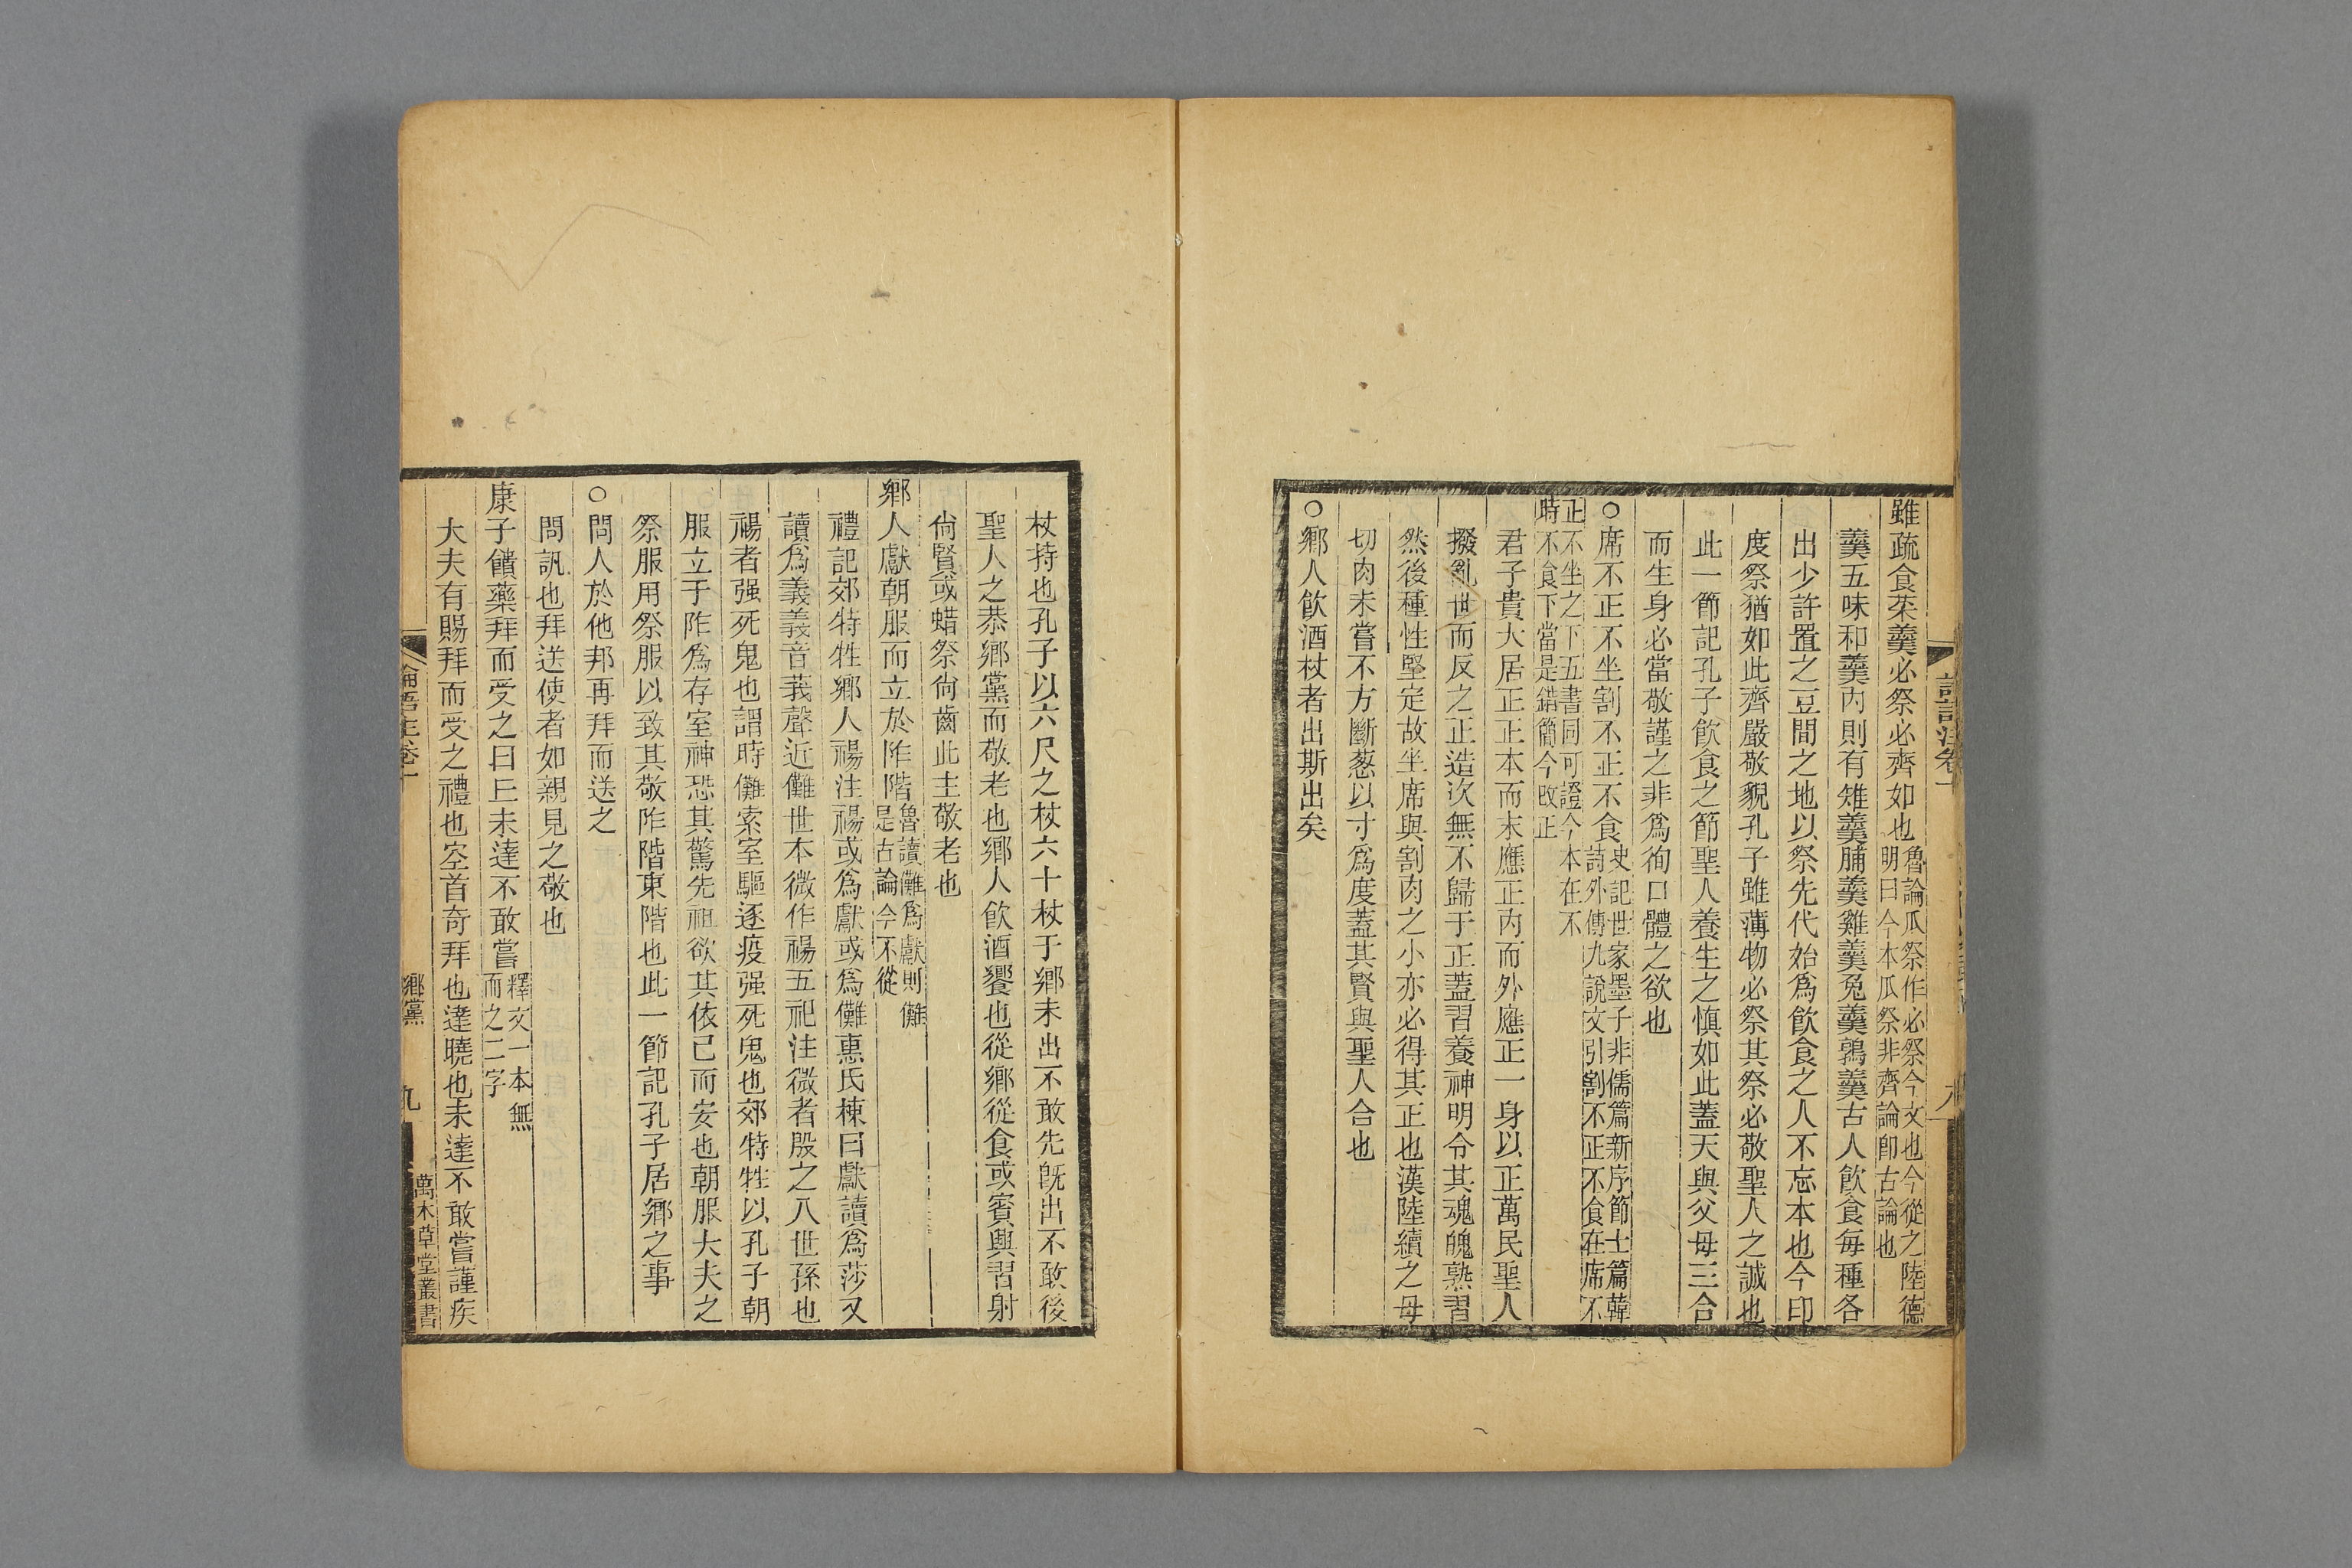 雖疏食菜羹必祭必齊如也魯論瓜祭作必祭今文也今從之陸德明曰今本瓜祭非齊論卽古論也
羹五味和羹內則有雉羹脯羹雞羹兔羹鶉羹古人飮食每種各
出少許置之豆間之地以祭先代始爲飮食之人不忘本也今印
度祭猶如此齊嚴敬貌孔子雖薄物必祭其祭必敬聖人之誠也
此一節記孔子飮食之節聖人養生之愼如此蓋天與父母三合
而生身必當敬謹之非爲徇口體之欲也
○席不正不坐割不正不食史記世家墨子非儒篇新序節士篇韓詩外傳九說文引割不正不食在席不
正不坐之下五書同可證今本在不時不食下當是錯簡今改正
君子貴大居正正本而末應正內而外應正一身以正萬民聖人
撥亂世而反之正造次無不歸于正蓋習養神明令其魂魄熟習
然後種性堅定故坐席與割肉之小亦必得其正也漢陸續之母
切肉未嘗不方斷葱以寸爲度蓋其賢與聖人合也
○鄉人飮酒杖者出斯出矣
杖持也孔子以六尺之杖六十杖于鄉未出不敢先旣出不敢後
聖人之恭鄉黨而敬老也鄉人飮酒饗也從鄉從食或賓興習射
尙賢或蜡祭尙齒此主敬老也
鄉人獻朝服而立於阼階魯讀儺爲獻則儺是古論今不從
禮記郊特牲鄉人禓注禓或爲獻或爲儺惠氏棟曰獻讀爲莎又
讀爲義義音莪聲近儺世本微作禓五祀注微者殷之八世孫也
禓者强死鬼也謂時儺索室驅逐疫强死鬼也郊特牲以孔子朝
服立于阼爲存室神恐其驚先祖欲其依己而安也朝服大夫之
祭服用祭服以致其敬阼階東階也此一節記孔子居鄉之事
○問人於他邦再拜而送之
問訊也拜送使者如親見之敬也
康子饋藥拜而受之曰丘未達不敢嘗釋文一本無而之二字
大夫有賜拜而受之禮也空首奇拜也達曉也未達不敢嘗謹疾
論語注卷十
鄉黨
九
萬木草堂叢書